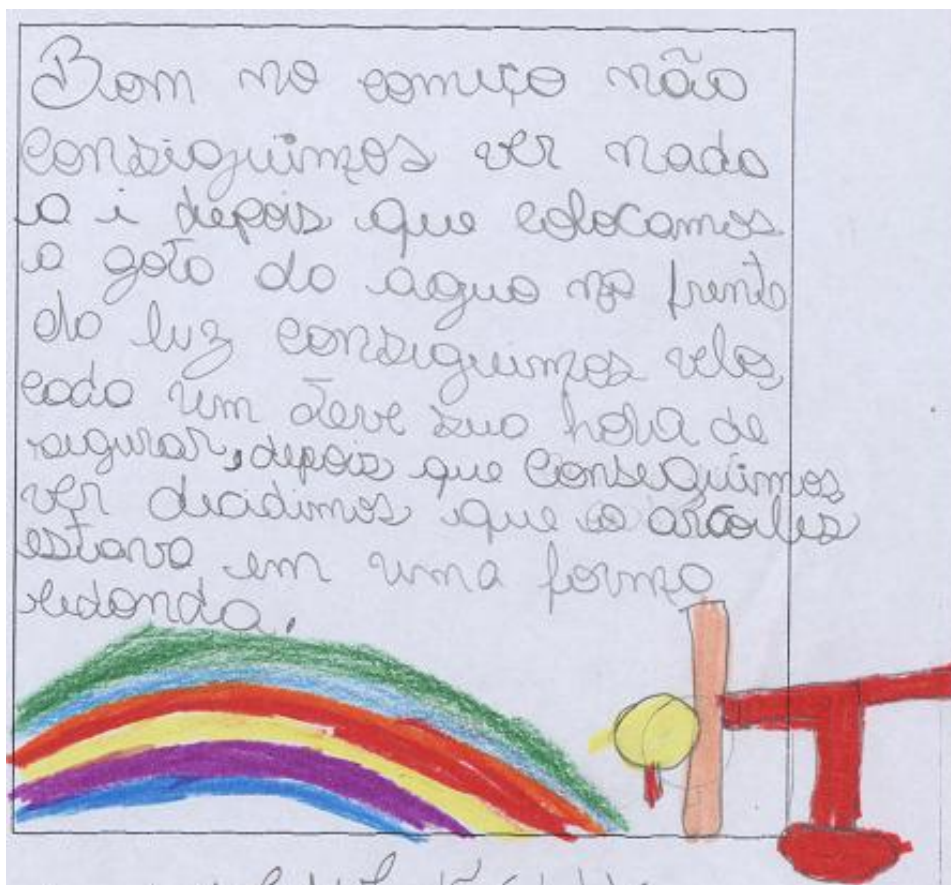 Bom no começo não
conseguimos ver nada
a i depois que colocamos
a gota da agua na frente
da luz conseguimos velo,
cada um teve sua hora de
segurar, depois que conseguimos
ver decidimos que o arcoíles
estava em uma forma
redonda.